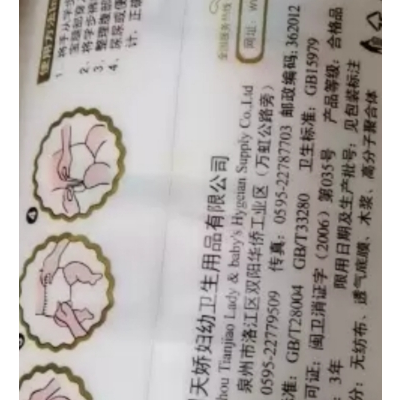 使用方法
1、将手从学步
2、将学步裤
3、整理腹部
尿尿或便
计，正确
全国服务热线
网址：w
天娇妇幼卫生用品有限公司
hou Tianjiao Lady & baby's Hygeian Supply Co.,Ltd
泉州市洛江区双阳华侨工业区（万虹公路旁）
0595-22779509 传真：0595-22787703 邮政编码：362012
准：GB/T28004 GB/T33280 卫生标准：GB15979
可证：闽卫消证字（2006）第035号 产品等级：合格品
：3年 限用日期及生产批号：见包装标注
分：无纺布、透气底膜、木浆、高分子聚合体